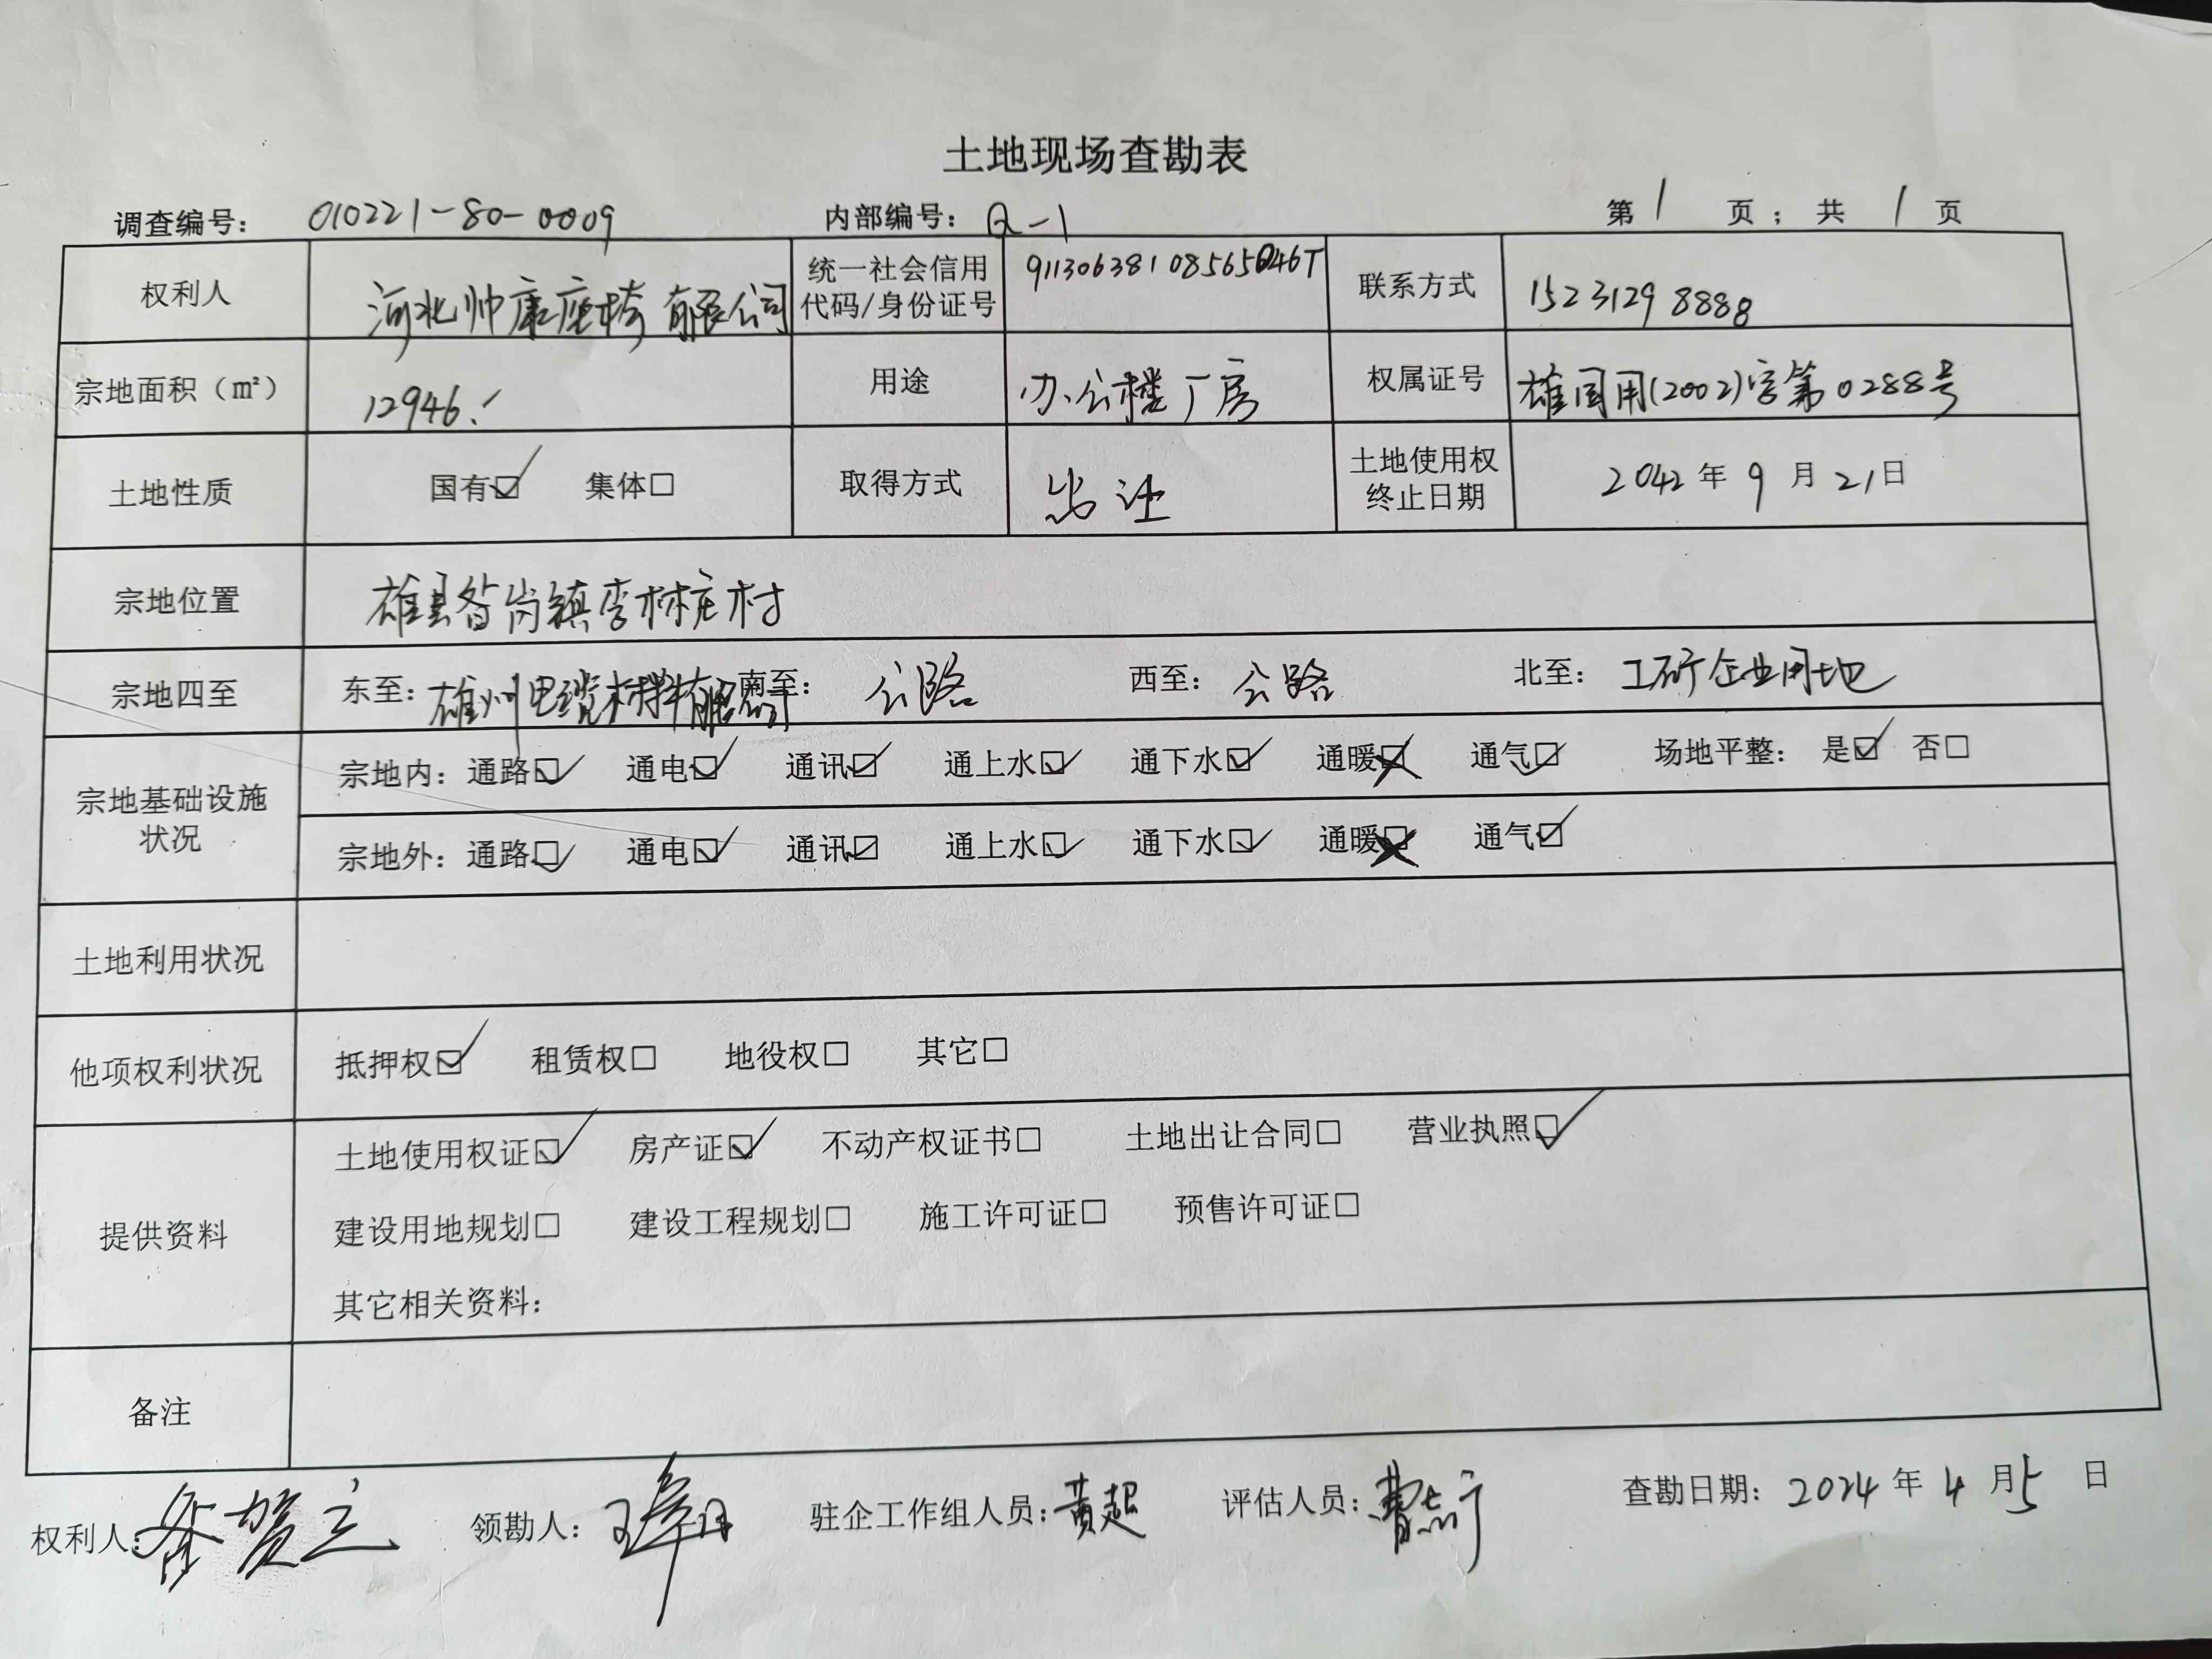 土地现场查勘表
调查编号： 010221-80-0009 内部编号： Q-1 第 1 页； 共 1 页
权利人 河北帅康座椅有限公司 统一社会信用代码/身份证号 联系方式 15231298888
宗地面积（㎡） 12946.1 用途 办公楼厂房 权属证号 雄国用(2002)字第0288号
土地性质 国有☑ 集体☐ 取得方式 出让 土地使用权终止日期 2042年9月21日
宗地位置 雄县昝岗镇李林庄村
宗地四至 东至：雄州电缆材料有限公司 南至： 公路 西至： 公路 北至： 工矿企业用地
宗地基础设施状况
宗地内：通路☑ 通电☑ 通讯☑ 通上水☑ 通下水☑ 通暖☒ 通气☑ 场地平整： 是☑ 否☐
宗地外：通路☑ 通电☑ 通讯☑ 通上水☑ 通下水☑ 通暖☒ 通气☑
土地利用状况
他项权利状况 抵押权☑ 租赁权☐ 地役权☐ 其它☐
提供资料
土地使用权证☑ 房产证☑ 不动产权证书☐ 土地出让合同☐ 营业执照☑
建设用地规划☐ 建设工程规划☐ 施工许可证☐ 预售许可证☐
其它相关资料：
备注
权利人： 领勘人： 驻企工作组人员：黄超 评估人员： 查勘日期： 2024年4月5日